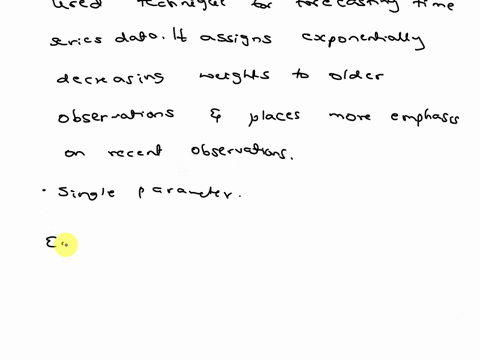 used technique for forecasting time
series data. It assigns exponentially
decreasing weights to older
observations & places more emphasis
on recent observations.
• Single parameter.